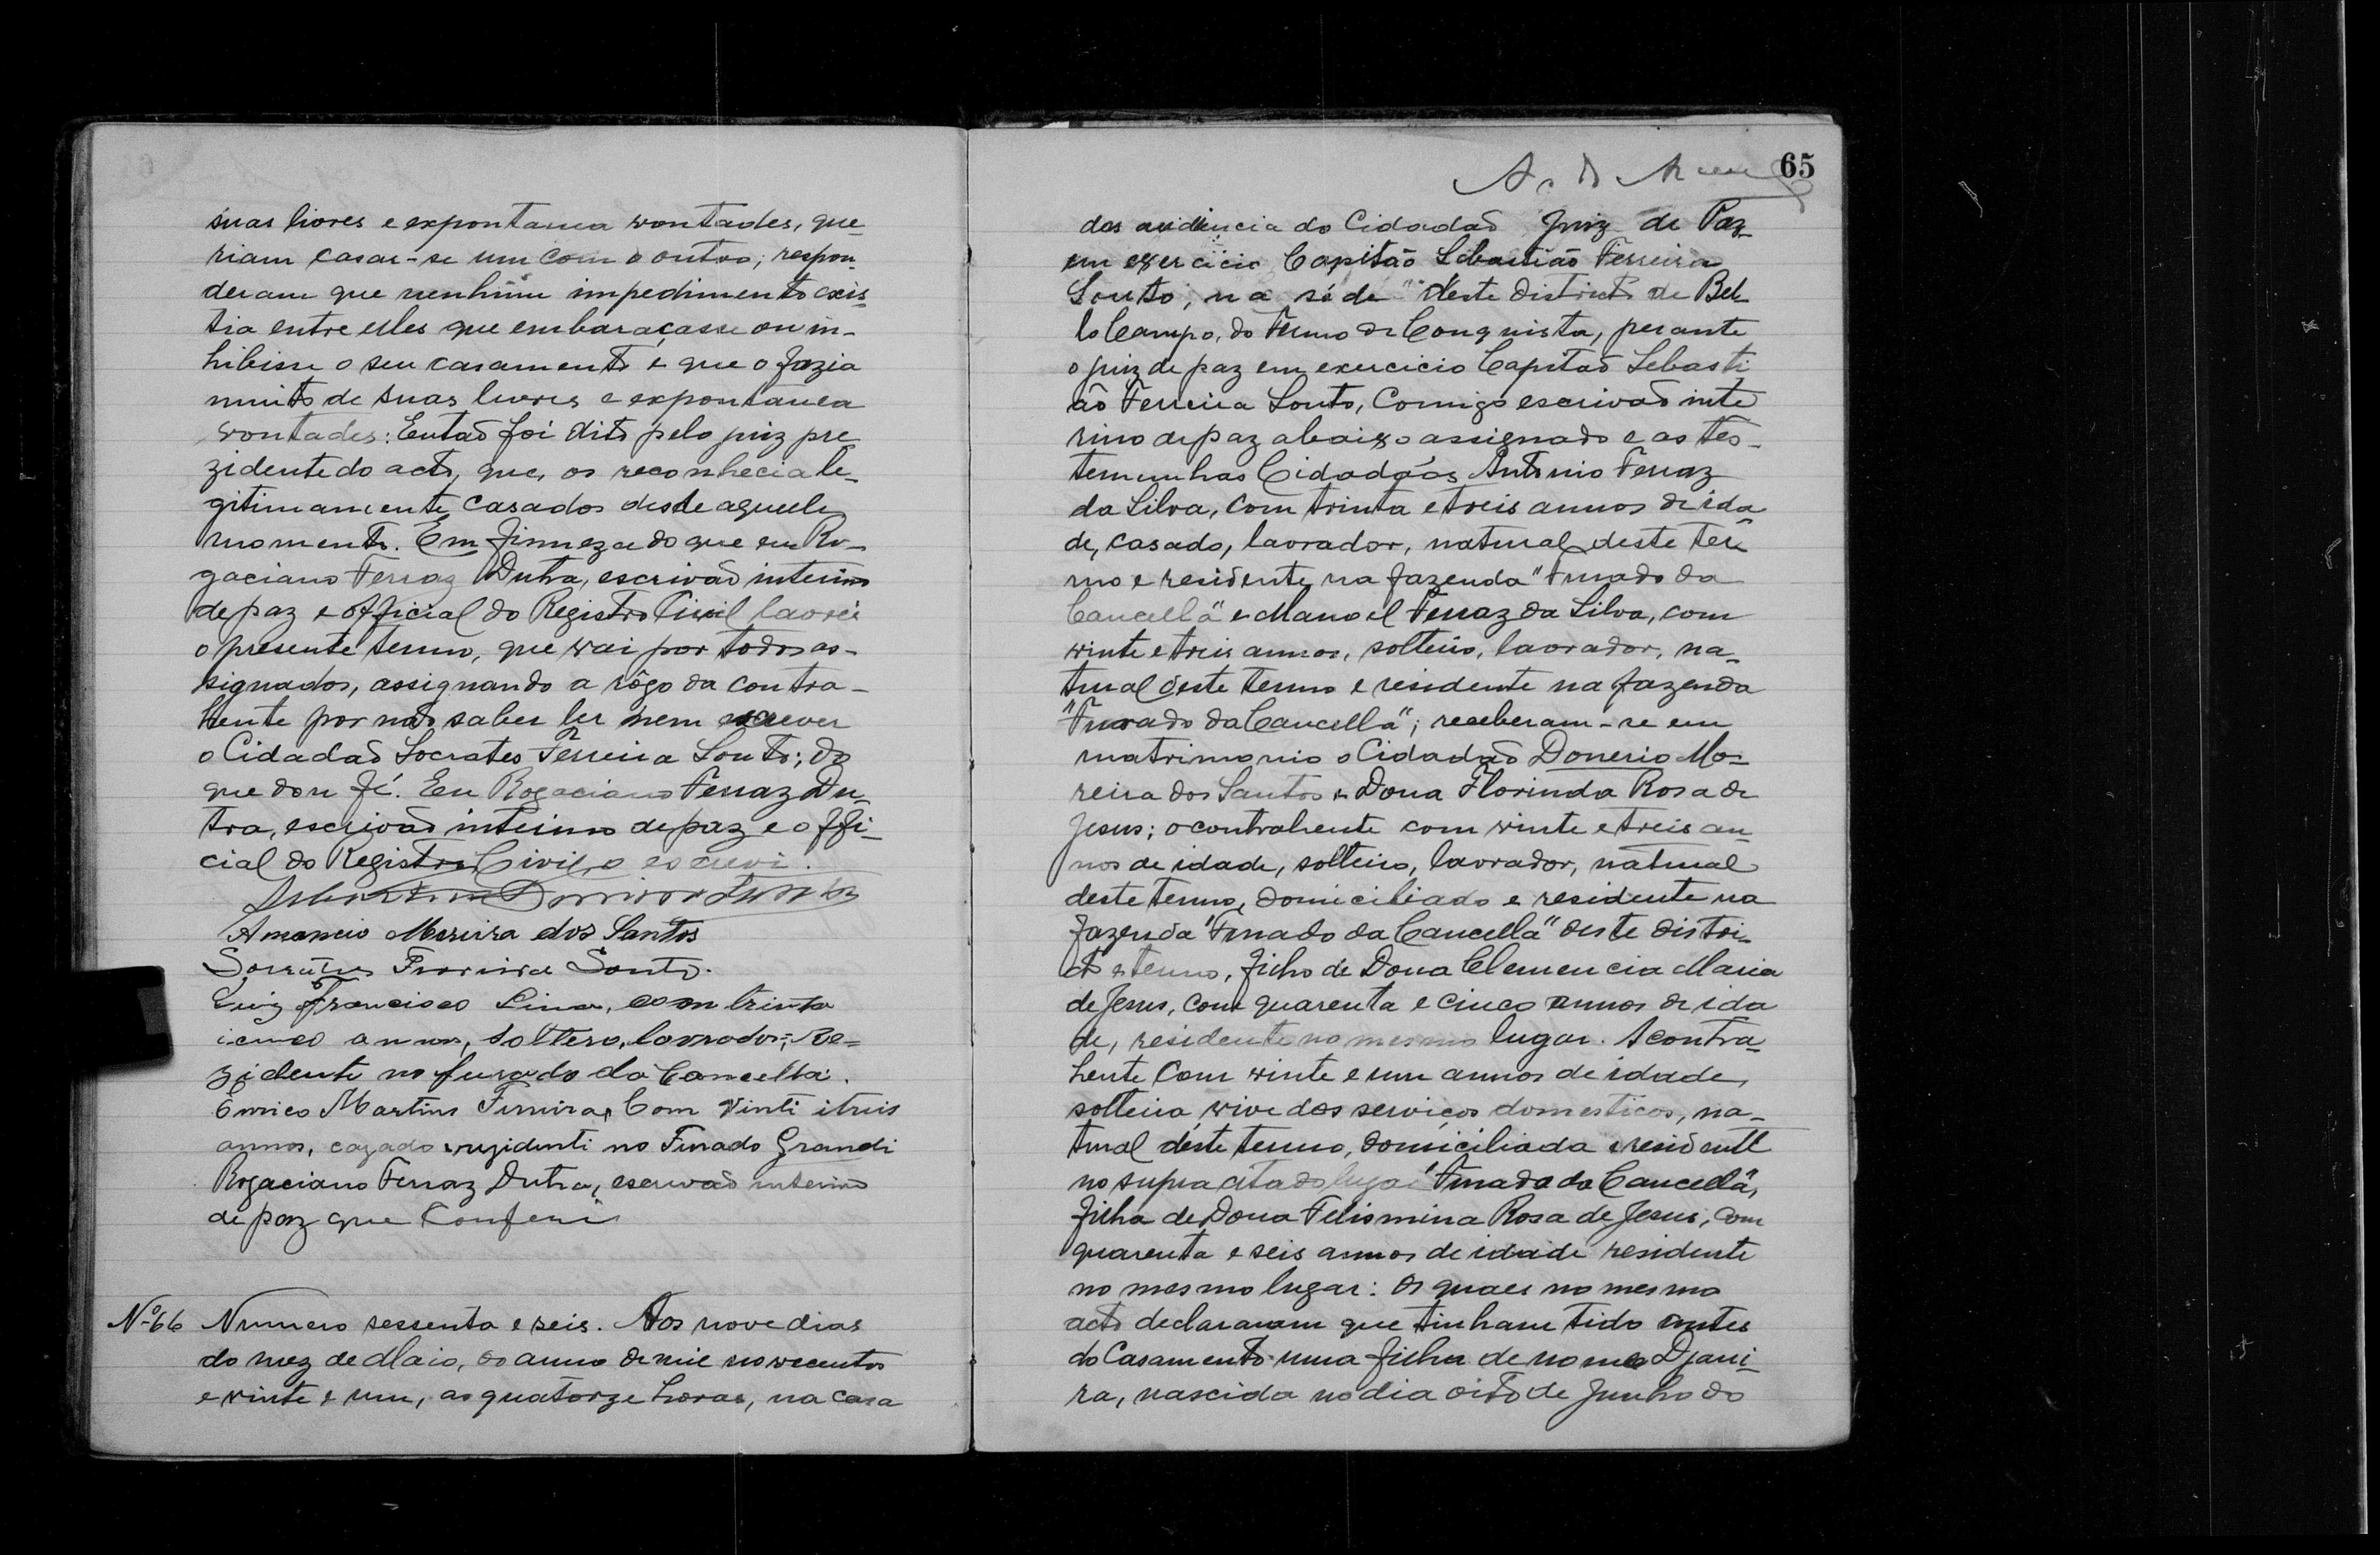 suas livres e expontanea vontades, que
riam casar-se um com o outro; respon
deram que nenhum impedimento exis
tia entre elles que embaraçasse ou in-
hibisse o seu casamento e que o fazia
muito de suas livres e expontanea
vontades: Então foi dito pelo juiz pre
zidente do acto, que, os reconhecia le-
gitimamente casados desde aquelle
momento. Em firmeza do que eu Ro-
gaciano Ferraz Dutra, escrivão interino
de paz e official do Registro Civil lavrei
o presente termo, que vai por todos as-
signados, assignando a rôgo da contra-
hente por não saber ler nem escrever
o Cidadão Socrates Ferreira Souto; do
que dou fé. Eu Rogaciano Ferraz Du-
tra, escrivão interino de paz e offi-
cial do Registro Civil, o escrevi.
Amancio Moreira dos Santos
Socrates Ferreira Souto.
Luiz Francisco Lima, com trinta
icinco annos, soltero, lavrador, Re=
zidente no furado da Cancella.
Martins Ferreira, Com Vinti itreis
annos, cazado rezidenti no Furado Grandi
Rogaciano Ferraz Dutra, escrivão interino
de paz que Conferi
Nº 66 Numero sessenta e seis. Aos nove dias
do mez de Maio, do anno de mil novecentos
e vinte e um, as quatorze horas, na casa
65
das audiencia do Cidadão Juiz de Paz
em exercicio Capitão Sebastião Ferreira
Souto, na séde deste districto de Bel
lo Campo, do Termo de Conquista, perante
o juiz de paz em exercicio Capitão Sebasti
ão Ferreira Souto, Comigo escrivão inte
rino de paz abaixo assignado e as tes-
temunhas Cidadãos Antonio Ferraz
da Silva, com trinta e treis annos de ida
de, casado, lavrador, natural deste ter
mo e residente na fazenda "Furado da
Cancella" e Manoel Ferraz da Silva, com
vinte e treis annos, solteiro, lavrador, na-
tural deste termo e residente na fazenda
"Furado da Cancella"; receberam-se em
matrimonio o Cidadão Donerio Mo-
reira dos Santos e Dona Florinda Rosa de
Jesus; o contrahente com vinte e treis an
nos de idade, solteiro, lavrador, natural
deste termo, domiciliado e residente na
fazenda "Furado da Cancella" deste distri-
cto e termo, filho de Dona Clemencia Maria
de Jesus, com quarenta e cinco annos de ida
de, residente no mesmo lugar. A contra-
hente com vinte e um annos de idade,
solteira, vive dos serviços domesticos, na-
tural deste termo, domiciliada e residente
no supra citado lugar "Furado da Cancella",
filha de Dona Felismina Rosa de Jesus, com
quarenta e seis annos de idade residente
no mesmo lugar: Os quaes no mesmo
acto declararam que tinham tido antes
do Casamento uma filha de nome Djani-
ra, nascida no dia oito de Junho do